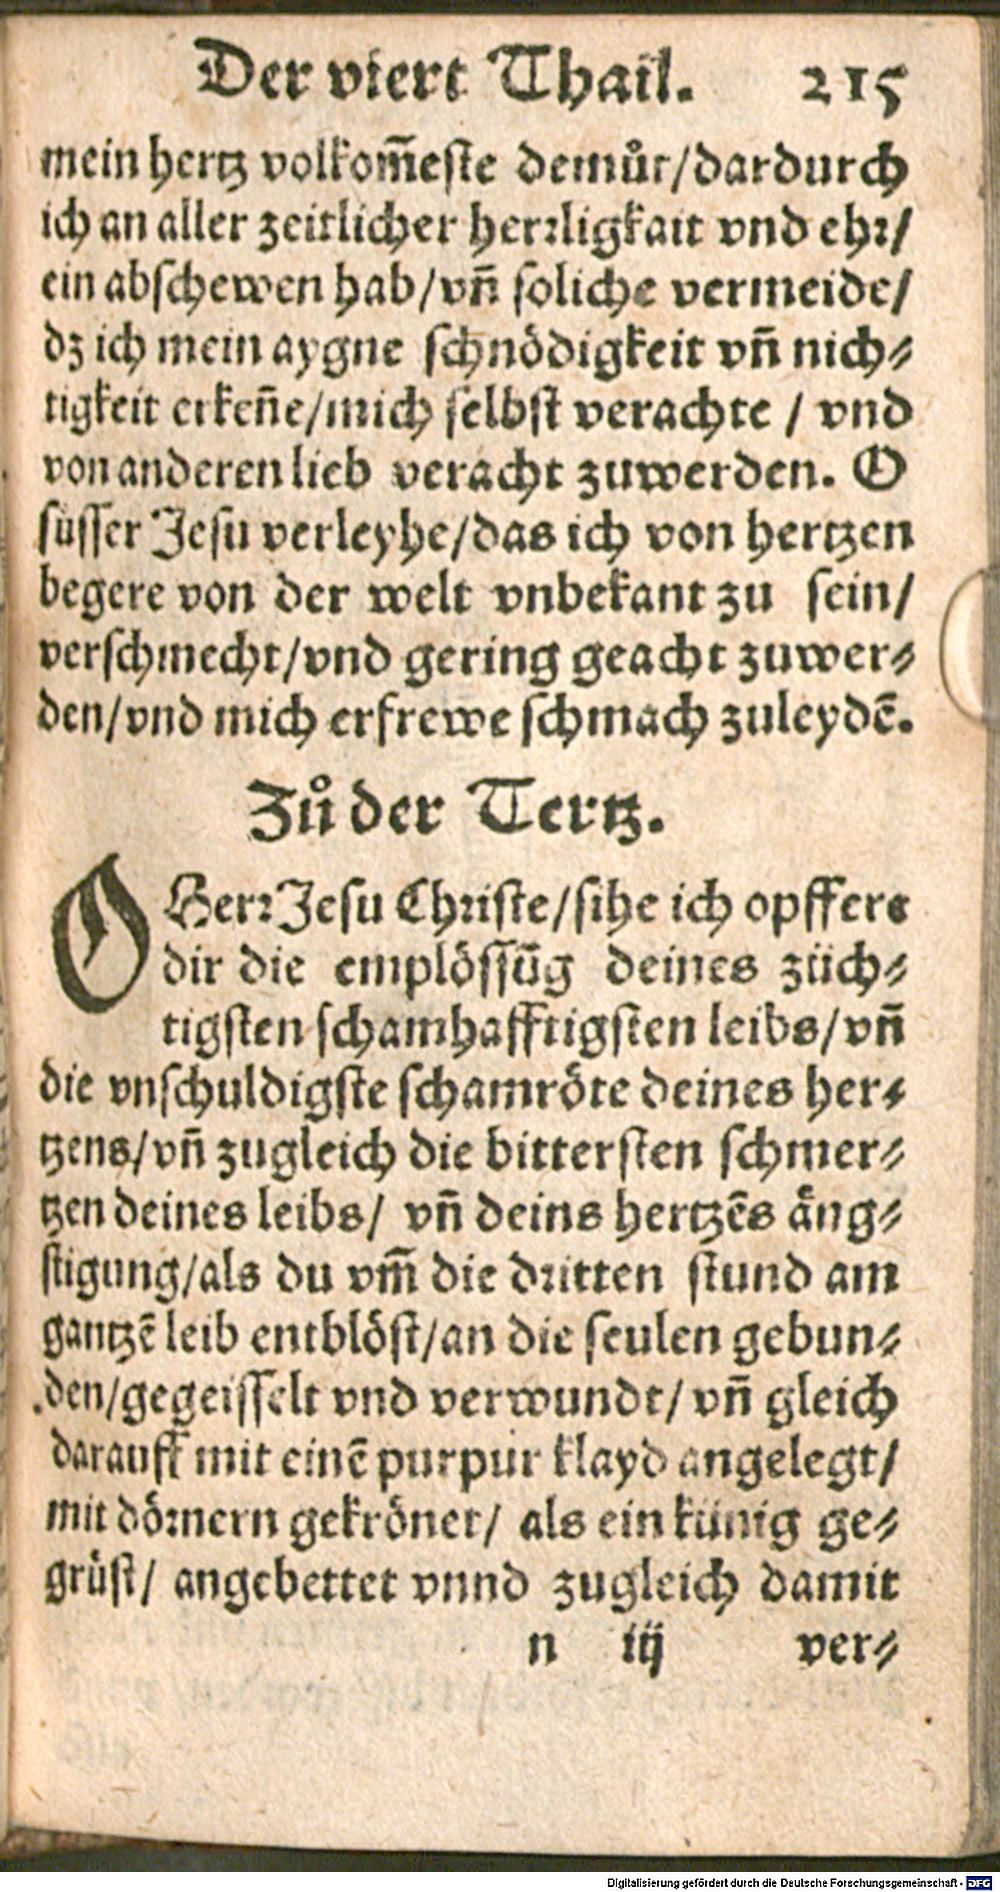 Der viert Thail. 215
mein hertz volkom̃este demůt/dardurch
ich an aller zeitlicher herꝛligkait vnd ehꝛ/
ein abschewen hab/vñ soliche vermeide/
dz ich mein aygne schnödigkeit vñ nich⸗
tigkeit erkeñe/mich selbst verachte / vnd
von anderen lieb veracht zuwerden. O
süsser Jesu verleyhe/das ich von hertzen
begere von der welt vnbekant zu sein/
verschmecht/vnd gering geacht zuwer⸗
den/vnd mich erfrewe schmach zuleydẽ.
Zů der Tertz.
O Herꝛ Jesu Chꝛiste/sihe ich opffere
dir die emplössũg deines züch⸗
tigsten schamhafftigsten leibs/vñ
die vnschuldigste schamröte deines her⸗
tzens/vñ zugleich die bittersten schmer⸗
tzen deines leibs/ vñ deins hertzẽs äng⸗
stigung/als du vm̃ die dꝛitten stund am
gantzẽ leib entblöst/an die seulen gebun⸗
den/gegeisselt vnd verwundt/ vñ gleich
darauff mit einẽ purpur klayd angelegt/
mit döꝛnern gekrönet/ als ein künig ge⸗
grüst/ angebettet vnnd zugleich damit
n iij ver⸗
Digitalisierung gefördert durch die Deutsche Forschungsgemeinschaft - DFG